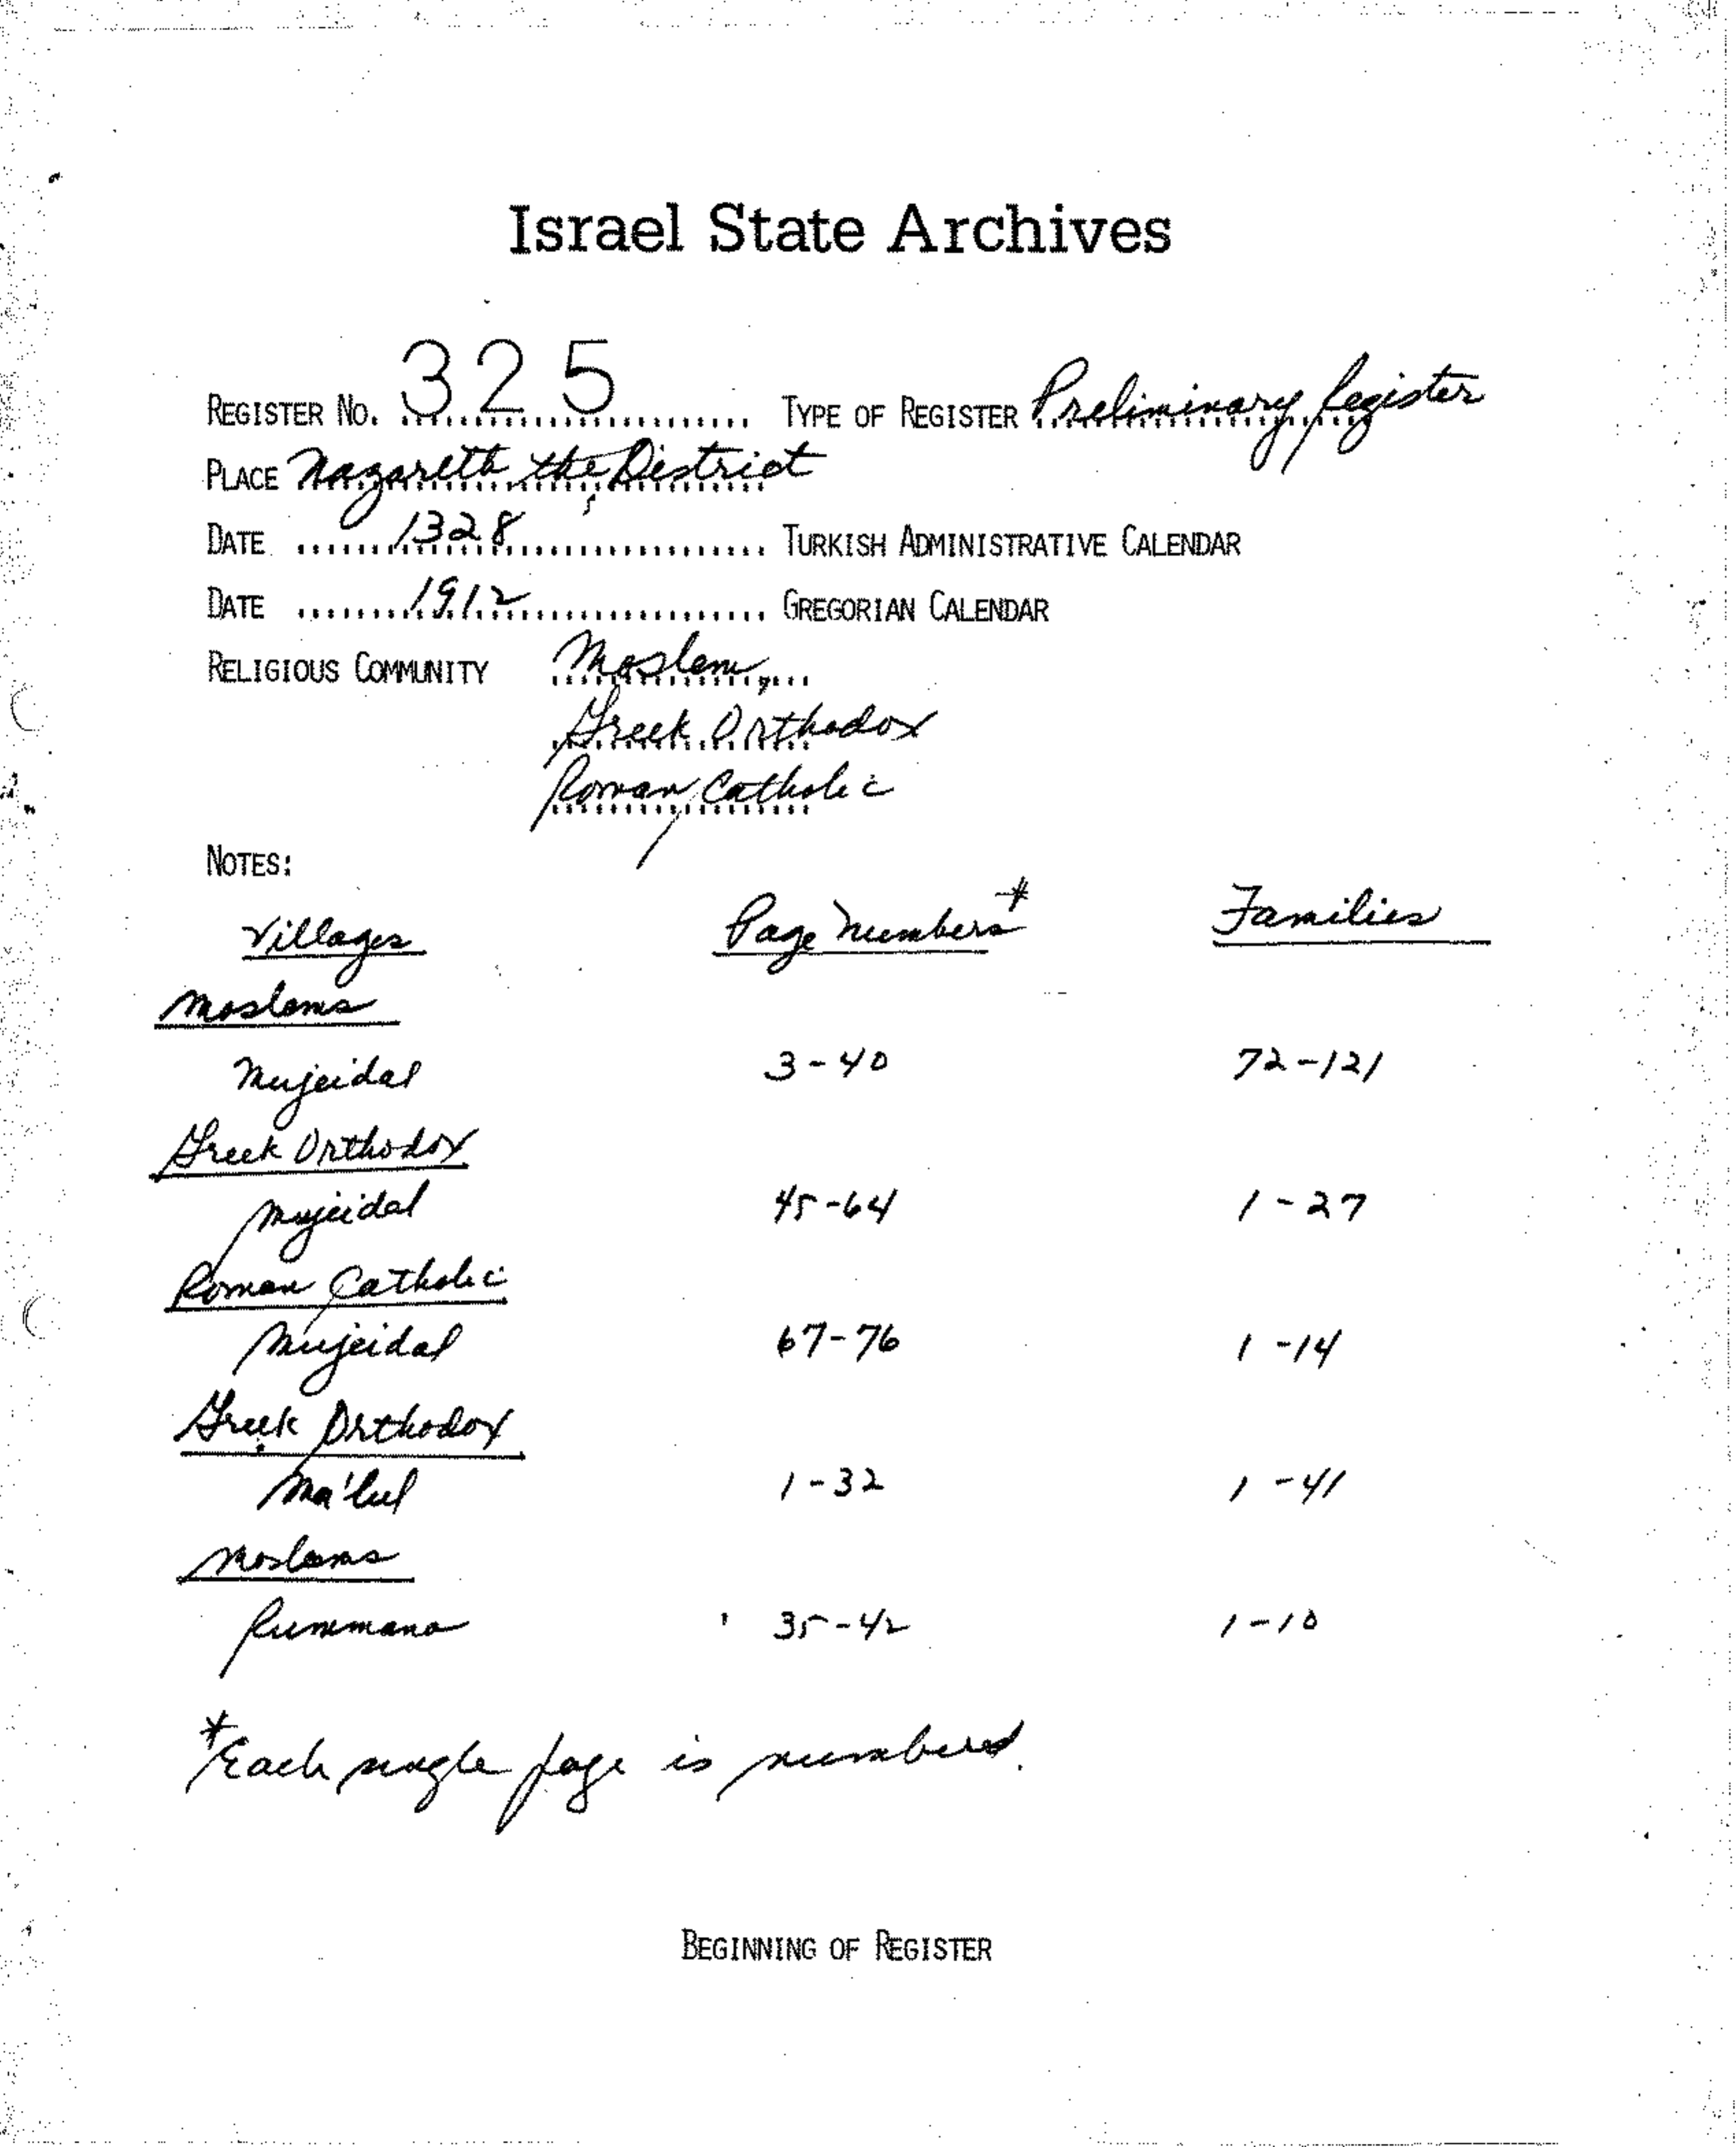 Israel State Archives
REGISTER NO. 325 TYPE OF REGISTER Preliminary Register
PLACE Nazareth the District
DATE 1328 TURKISH ADMINISTRATIVE CALENDAR
DATE 1912 GREGORIAN CALENDAR
RELIGIOUS COMMUNITY Moslem,
Greek Orthodox
Roman Catholic
NOTES:
Villages Page Numbers* Families
Moslems
Mujeidal 3-40 72-121
Greek Orthodox
Mujeidal 45-64 1-27
Roman Catholic
Mujeidal 67-76 1-14
Greek Orthodox
Ma'lul 1-32 1-41
Moslems
Rummana 35-42 1-10
*Each single page is numbered.
BEGINNING OF REGISTER